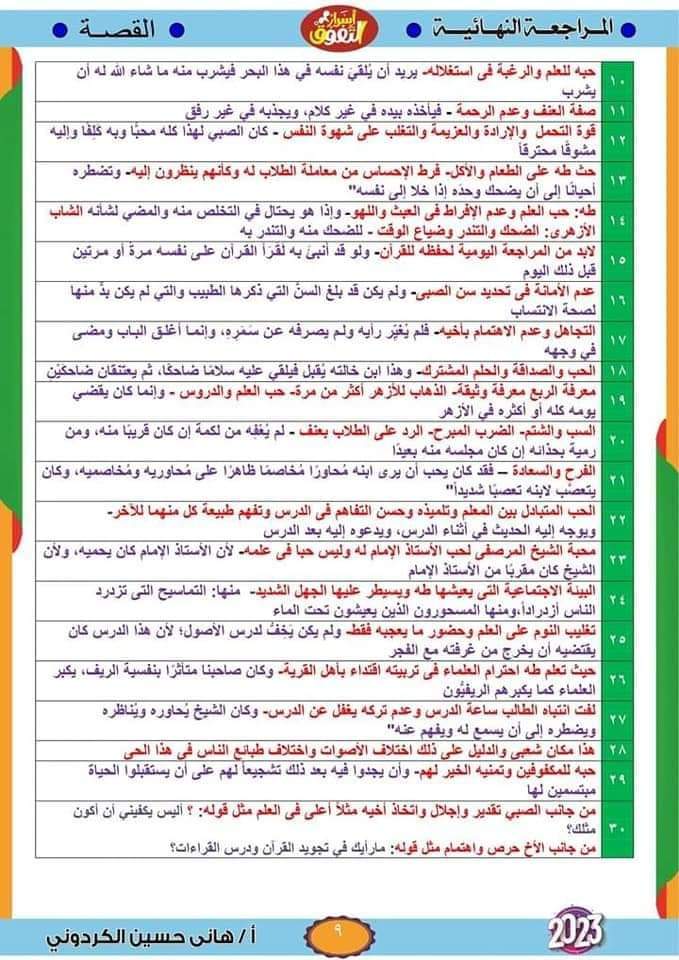 المراجعة النهائية
أسرار التفوق
القصة
١٠
حبه للعلم والرغبة فى استغلاله- يريد أن يُلقيَ نفسه في هذا البحر فيشرب منه ما شاء الله له أن
يشرب
١١
صفة العنف وعدم الرحمة - فيأخذه بيده في غير كلام، ويجذبه في غير رفق
١٢
قوة التحمل والإرادة والعزيمة والتغلب على شهوة النفس - كان الصبي لهذا كله محبًّا وبه كَلِفًا وإليه
مشوقًا محترقاً
١٣
حث طه على الطعام والأكل- فرط الإحساس من معاملة الطلاب له وكأنهم ينظرون إليه- وتضطره
أحيانًا إلى أن يضحك وحده إذا خلا إلى نفسه"
١٤
طه: حب العلم وعدم الإفراط فى العبث واللهو- وإذا هو يحتال في التخلص منه والمضي لشأنه الشاب
الأزهرى: الضحك والتندر وضياع الوقت - للضحك منه والتندر به
١٥
لابد من المراجعة اليومية لحفظه للقرآن- ولو قد أنبئ به لقَرَأ القرآن على نفسه مرةً أو مرتين
قبل ذلك اليوم
١٦
عدم الأمانة فى تحديد سن الصبى- ولم يكن قد بلغ السنَّ التي ذكرها الطبيب والتي لم يكن بدٌ منها
لصحة الانتساب
١٧
التجاهل وعدم الاهتمام بأخيه- فلم يُغيِّر رأيه ولم يصرفه عن سَمَرِهِ، وإنما أغلق الباب ومضى
في وجهه
١٨
الحب والصداقة والحلم المشترك- وهذا ابن خالته يُقبل فيلقي عليه سلامًا ضاحكًا، ثم يعتنقان ضاحكَيْنِ
١٩
معرفة الربع معرفة وثيقة- الذهاب للأزهر أكثر من مرة- حب العلم والدروس - وإنما كان يقضي
يومه كله أو أكثره في الأزهر
٢٠
السب والشتم- الضرب المبرح- الرد على الطلاب بعنف - لم يُعْفِه من لكمة إن كان قريبًا منه، ومن
رمية بحذائه إن كان مجلسه منه بعيدًا
٢١
الفرح والسعادة – فقد كان يحب أن يرى ابنه مُحاورًا مُخاصمًا ظاهرًا على مُحاوريه ومُخاصميه، وكان
يتعصَّب لابنه تعصبًا شديداً"
٢٢
الحب المتبادل بين المعلم وتلميذه وحسن التفاهم فى الدرس وتفهم طبيعة كل منهما للآخر-
ويوجه إليه الحديث في أثناء الدرس، ويدعوه إليه بعد الدرس
٢٣
محبة الشيخ المرصفى لحب الأستاذ الإمام له وليس حبا فى علمه- لأن الأستاذ الإمام كان يحميه، ولأن
الشيخ كان مقربًا من الأستاذ الإمام
٢٤
البيئة الاجتماعية التى يعيشها طه ويسيطر عليها الجهل الشديد- منها: التماسيح التى تزدرد
الناس أزدراداً،ومنها المسحورون الذين يعيشون تحت الماء
٢٥
تغليب النوم على العلم وحضور ما يعجبه فقط- ولم يكن يَخِفُّ لدرس الأصول؛ لأن هذا الدرس كان
يقتضيه أن يخرج من غرفته مع الفجر
٢٦
حيث تعلم طه احترام العلماء فى تربيته اقتداء بأهل القرية- وكان صاحبنا متأثرًا بنفسية الريف، يكبر
العلماء كما يكبرهم الريفيُّون
٢٧
لفت انتباه الطالب ساعة الدرس وعدم تركه يغفل عن الدرس- وكان الشيخ يُحاوره ويُناظره
ويضطره إلى أن يسمع له ويفهم عنه"
٢٨
هذا مكان شعبى والدليل على ذلك اختلاف الأصوات واختلاف طبائع الناس في هذا الحى
٢٩
حبه للمكفوفين وتمنيه الخير لهم- وأن يجدوا فيه بعد ذلك تشجيعاً لهم على أن يستقبلوا الحياة
مبتسمين لها
٣٠
من جانب الصبي تقدير وإجلال واتخاذ أخيه مثلاً أعلى فى العلم مثل قوله: ؟ أليس يكفيني أن أكون
مثلك؟
من جانب الأخ حرص واهتمام مثل قوله: مارأيك في تجويد القرآن ودرس القراءات؟
أ/ هانى حسين الكردوني
٩
2023